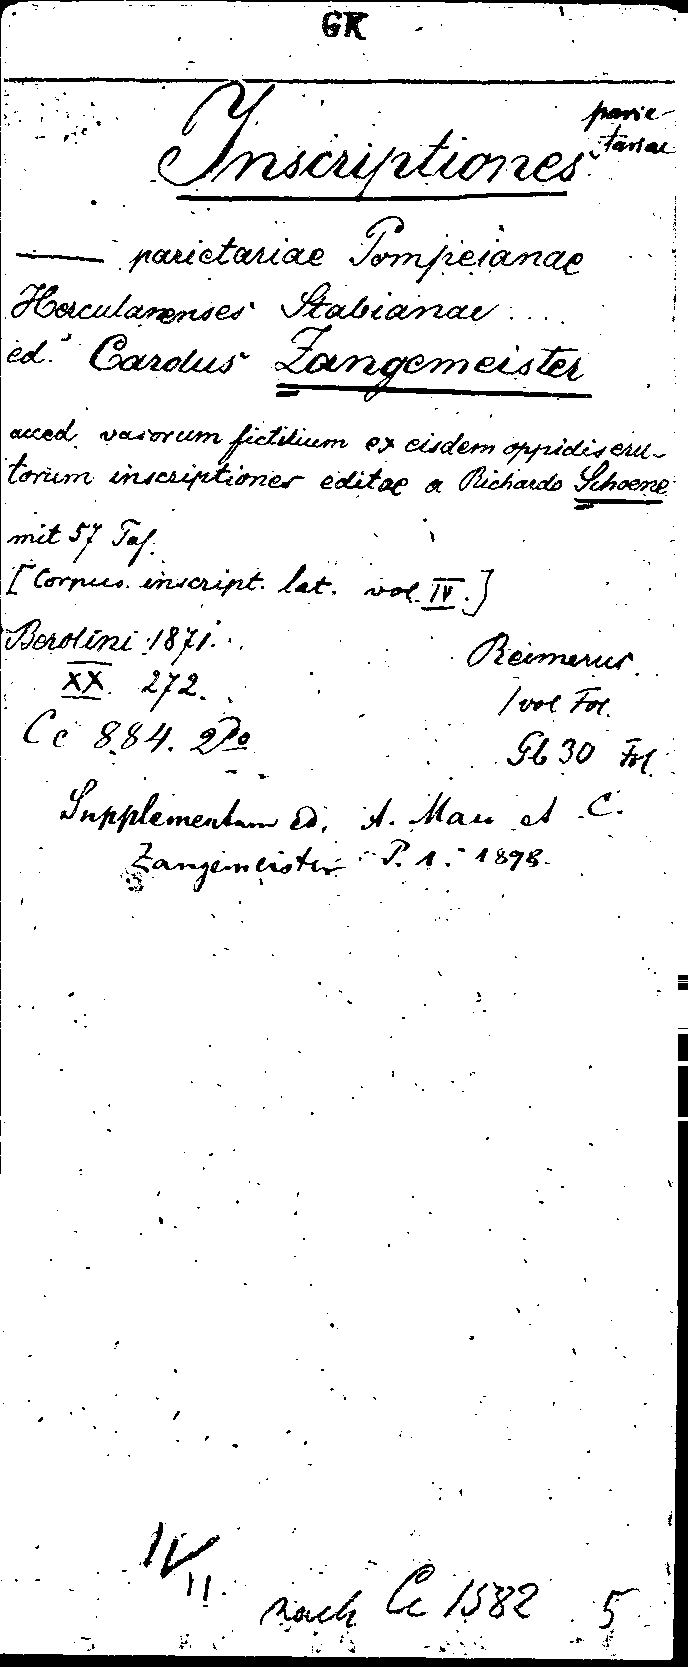 GK
parie-
tariae
Inscriptiones
—— parietariae Pompeianae
Herculanenses Stabianae ....
ed. Carolus Zangemeister
acced. vasorum fictilium ex eisdem oppidis eru-
torum inscriptiones editae a Richardo Schoene
mit 57 Taf.
[Corpus inscript. lat. vol. IV.]
Berolini 1871. Reimerus.
XX 272. 1 vol Fol.
Cc 884. 2do Gb 30 Fol.
Supplementum ed. A. Mau et C.
Zangemeister P. 1. 1898.
IV/11
nach Cc 1582 5